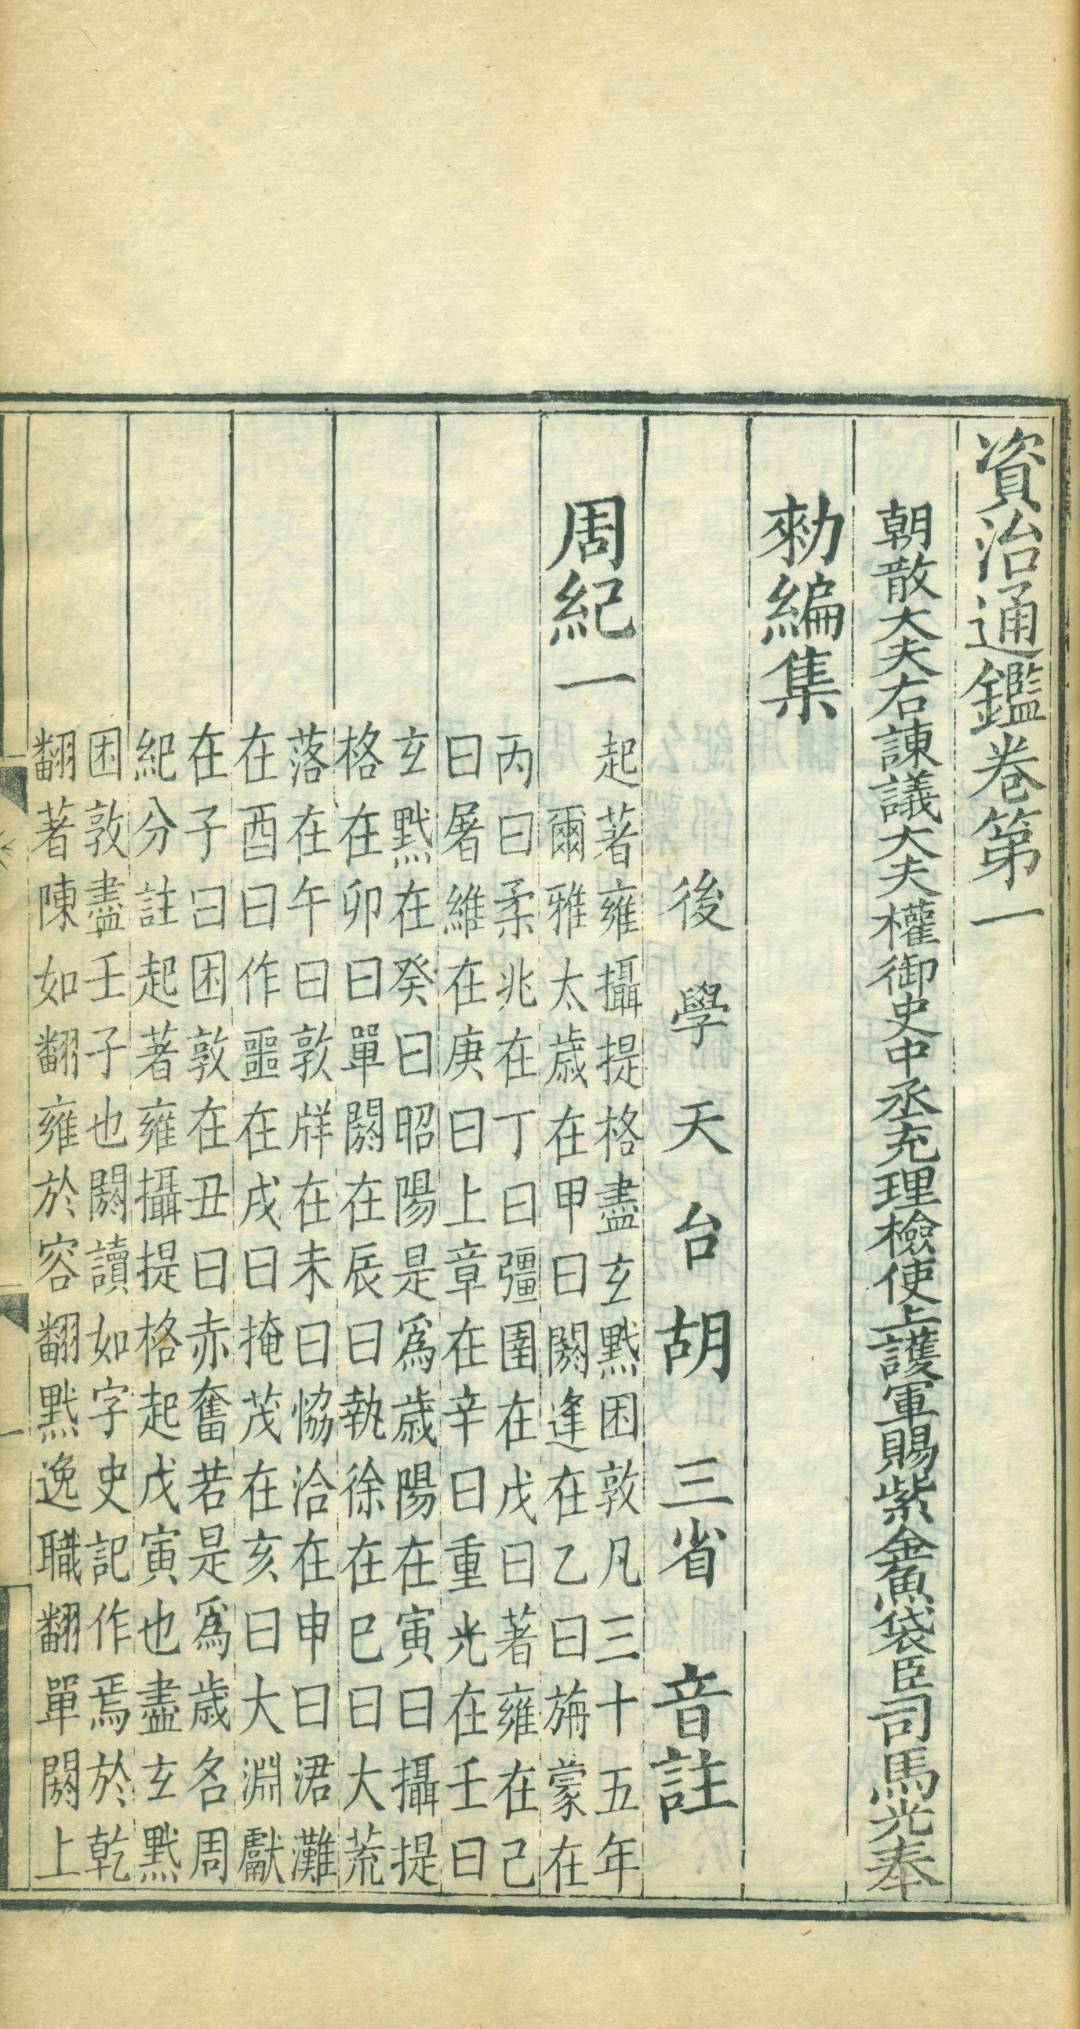 資治通鑑卷第一
朝散大夫右諫議大夫權御史中丞充理檢使上護軍賜紫金魚袋臣司馬光奉
勑編集
後學天台胡三省音註
周紀一
起著雍攝提格盡玄黓困敦凡三十五年
爾雅太歲在甲曰閼逢在乙曰旃蒙在
丙曰柔兆在丁曰彊圉在戊曰著雍在己
曰屠維在庚曰上章在辛曰重光在壬曰
玄黓在癸曰昭陽是爲歲陽在寅曰攝提
格在卯曰單閼在辰曰執徐在巳曰大荒
落在午曰敦牂在未曰恊洽在申曰涒灘
在酉曰作噩在戌曰掩茂在亥曰大淵獻
在子曰困敦在丑曰赤奮若是爲歲名周
紀分註起著雍攝提格起戊寅也盡玄黓
困敦盡壬子也閼讀如字史記作焉於乾
翻著陳如翻雍於容翻黓逸職翻單閼上